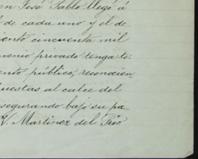 José Pablo Llegó á
de cada uno y el de
ciento cincuenta mil
monio privado tenga te
ento público, reconocien
puestas al calce del
segurando bajo su pa
V. Martinez del Rio